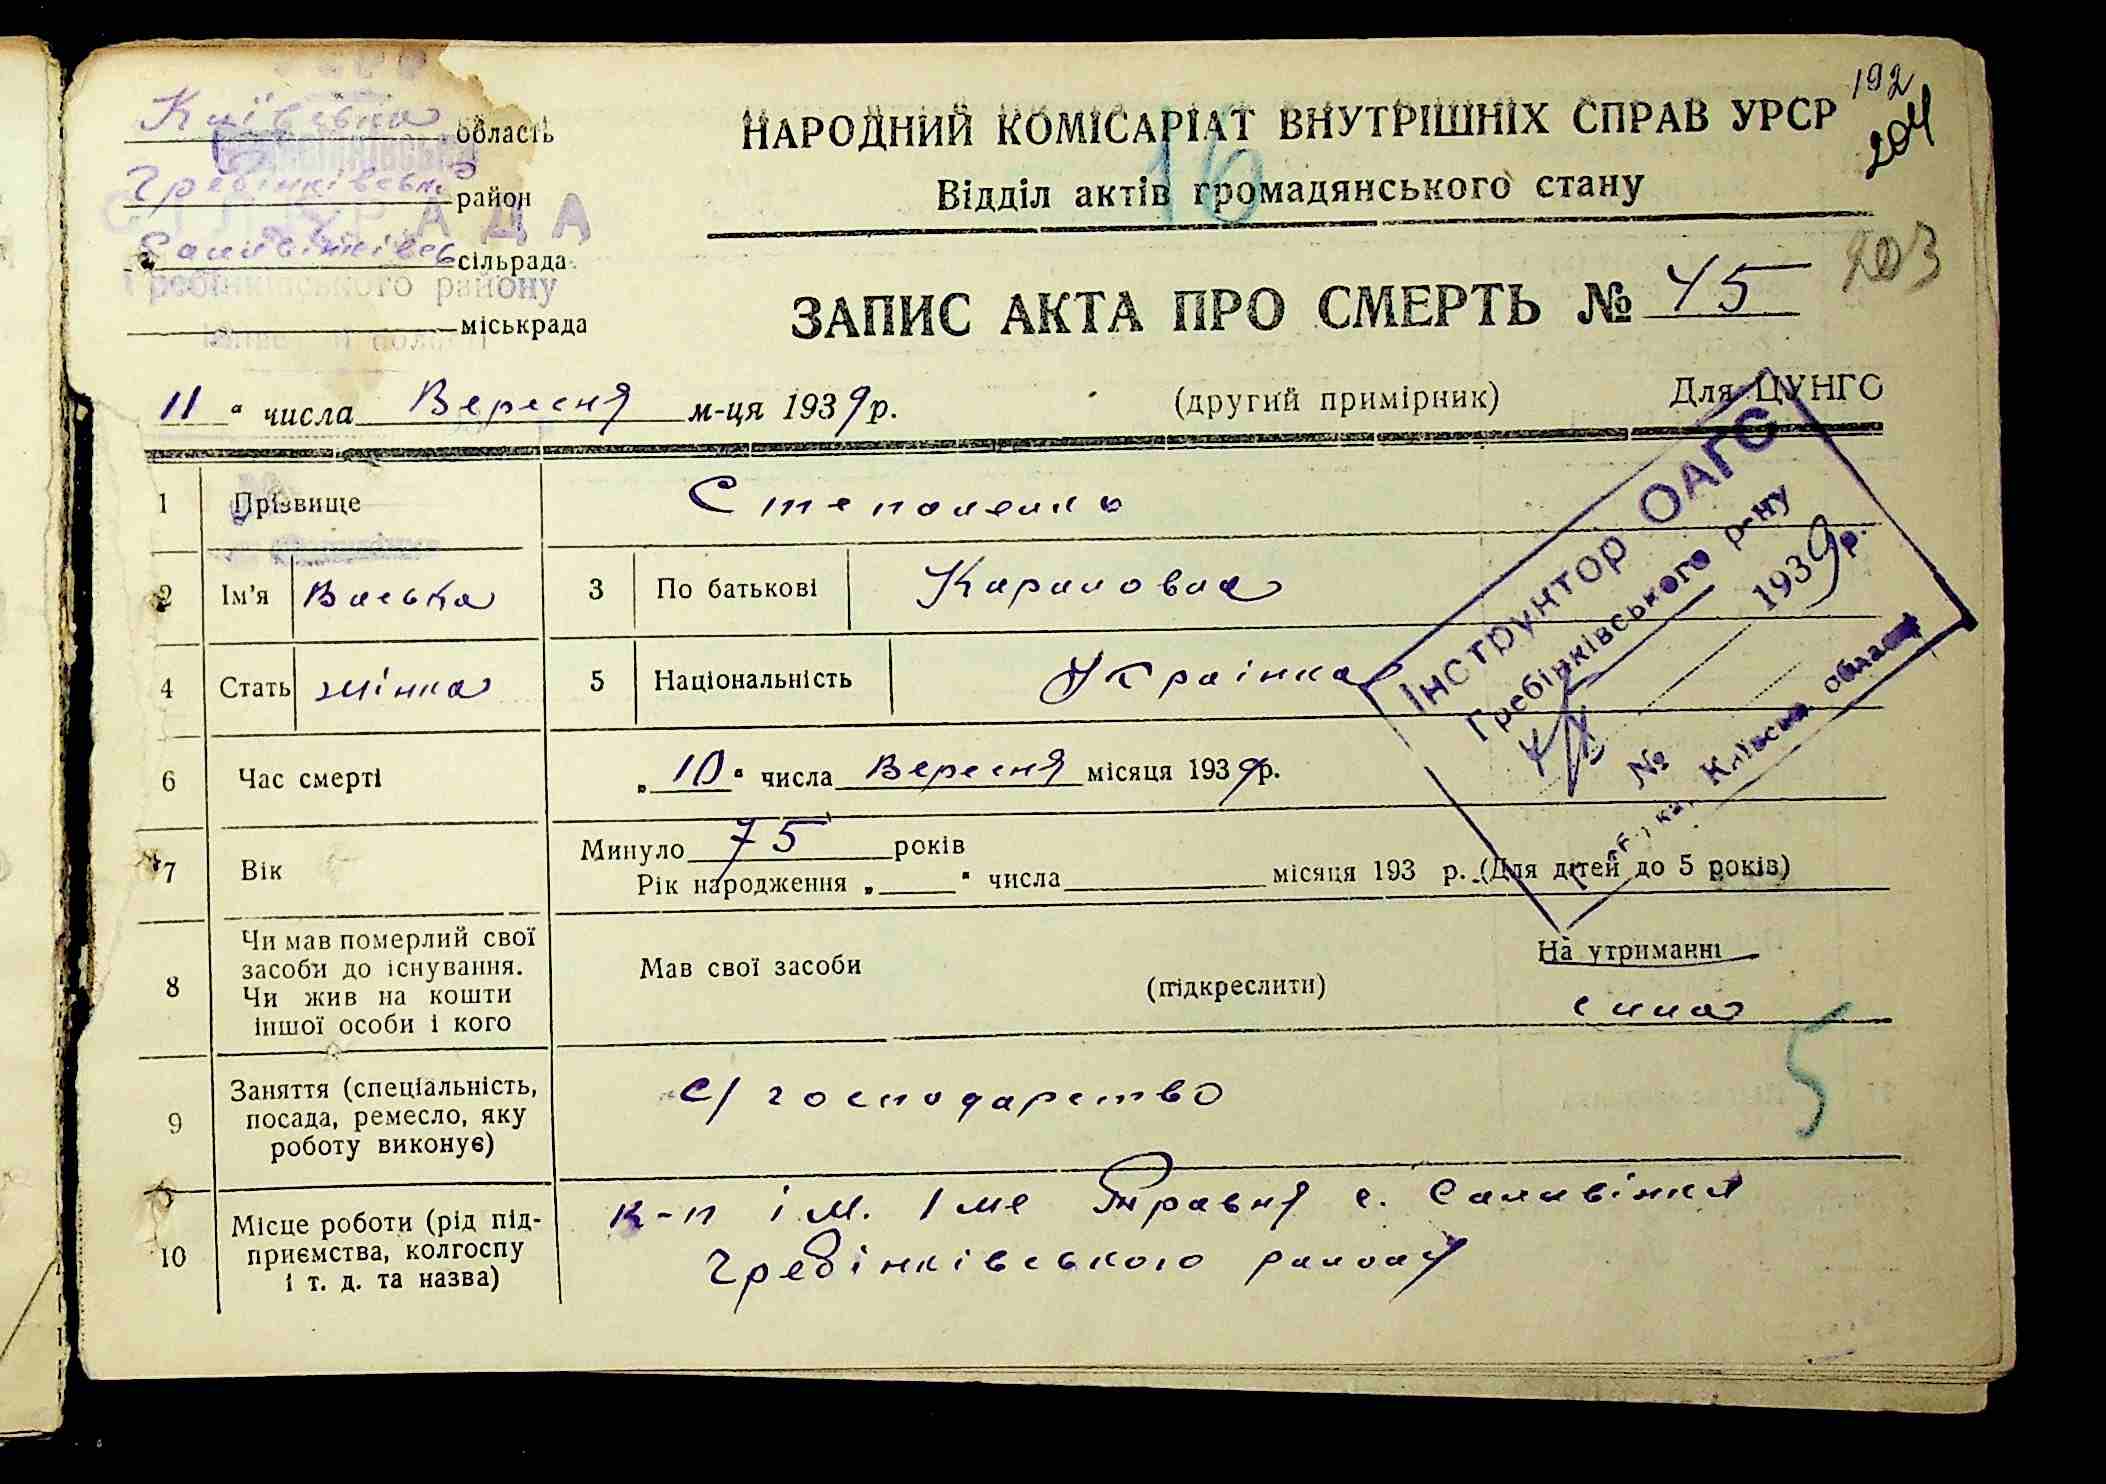 192
204
203
Київська область
Гребінківськ район
Саливінківськ сільрада
СІЛЬРАДА
Гребінківського району
міськрада
НАРОДНИЙ КОМІСАРІАТ ВНУТРІШНІХ СПРАВ УРСР
16
Відділ актів громадянського стану
ЗАПИС АКТА ПРО СМЕРТЬ № 45
11 " числа Вересня м-ця 1939 р.
(другий примірник)
Для ЦУНГО
Інструктор ОАГС
Гребінківського р-ну
1939 р.
№
Київська
1 Прізвище
2 Ім'я Васька 3 По батькові Кириловна
4 Стать жінка 5 Національність Українка
6 Час смерті „ 10 " числа Вересня місяця 1939 р.
7 Вік Минуло 75 років
Рік народження „ " числа місяця 193 р. (Для дітей до 5 років)
8 Чи мав померлий свої
засоби до існування.
Чи жив на кошти
іншої особи і кого
Мав свої засоби (підкреслити) На утриманні
сина
5
9 Заняття (спеціальність,
посада, ремесло, яку
роботу виконує)
с/господарство
10 Місце роботи (рід під-
приємства, колгоспу
і т. д. та назва)
к-п ім. 1ме Травня с. Саливінки
Гребінківського району